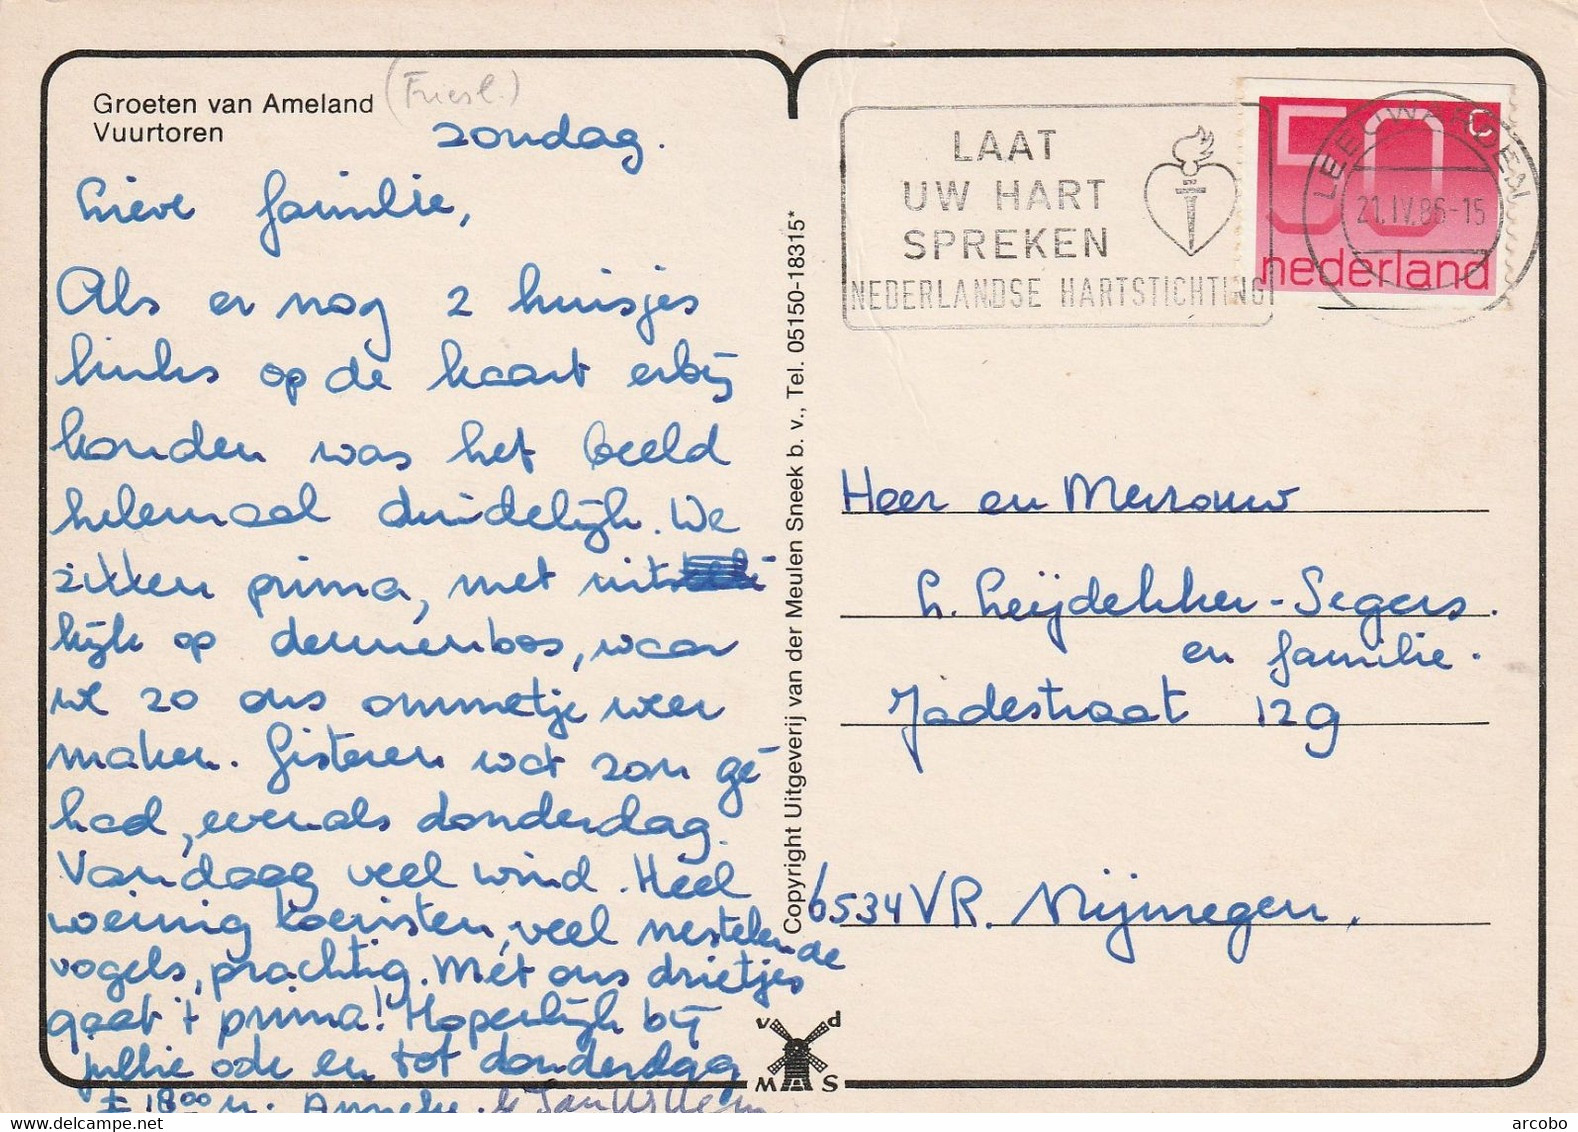 Groeten van Ameland
Vuurtoren
(Friesl.)
zondag.
Lieve familie,
Als er nog 2 huisjes
links op de kaart erbij
honden was het beeld
helemaal duidelijk. We
zitten prima, met uit
kijk op dennenbos, waar
we zo ons ommetje weer
maken. Gisteren wat zon ge
had, evenals donderdag.
Vandaag veel wind. Heel
weinig toeristen, veel nestelende
vogels, prachtig. Met ons drietjes
gaat 't prima! Hopelijk bij
jullie ook en tot donderdag
± 18.00 u. Anneke & Jan Willem
Copyright Uitgeverij van der Meulen Sneek b. v., Tel. 05150-18315*
v d
M S
LAAT
UW HART
SPREKEN
NEDERLANDSE HARTSTICHTING
50 c
nederland
LEEUWARDEN
21.IV.86-15
Heer en Mevrouw
L. Leijdekker-Segers.
en familie.
Jadestraat 129
6534VR. Nijmegen.
arcobo